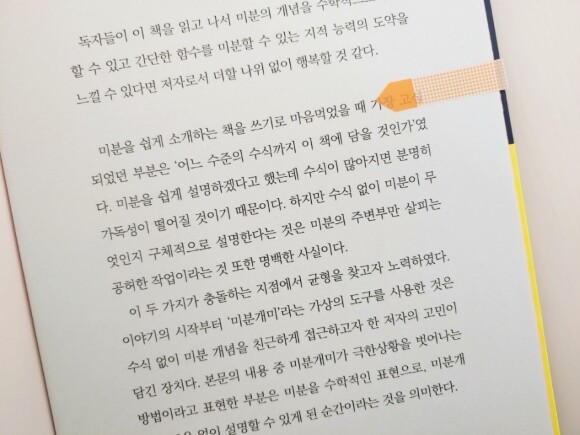 독자들이 이 책을 읽고 나서 미분의 개념을 수학적으로
할 수 있고 간단한 함수를 미분할 수 있는 지적 능력의 도약을
느낄 수 있다면 저자로서 더할 나위 없이 행복할 것 같다.
미분을 쉽게 소개하는 책을 쓰기로 마음먹었을 때 가장
되었던 부분은 ‘어느 수준의 수식까지 이 책에 담을 것인가’였
다. 미분을 쉽게 설명하겠다고 했는데 수식이 많아지면 분명히
가독성이 떨어질 것이기 때문이다. 하지만 수식 없이 미분이 무
엇인지 구체적으로 설명한다는 것은 미분의 주변부만 살피는
공허한 작업이라는 것 또한 명백한 사실이다.
이 두 가지가 충돌하는 지점에서 균형을 찾고자 노력하였다.
이야기의 시작부터 ‘미분개미’라는 가상의 도구를 사용한 것은
수식 없이 미분 개념을 친근하게 접근하고자 한 저자의 고민이
담긴 장치다. 본문의 내용 중 미분개미가 극한상황을 벗어나는
방법이라고 표현한 부분은 미분을 수학적인 표현으로, 미분개
없이 설명할 수 있게 된 순간이라는 것을 의미한다.